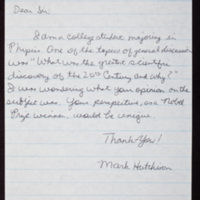 Dear Sir:
I am a college student majoring in
Physics. One of the topics of general discussion
was "What was the greatest scientific
discovery of the 20th Century and why?"
I was wondering what your opinion on the
subject was. Your perspective, as a Nobel
Prize winner, would be unique.
Thank You!
Mark Hutchison